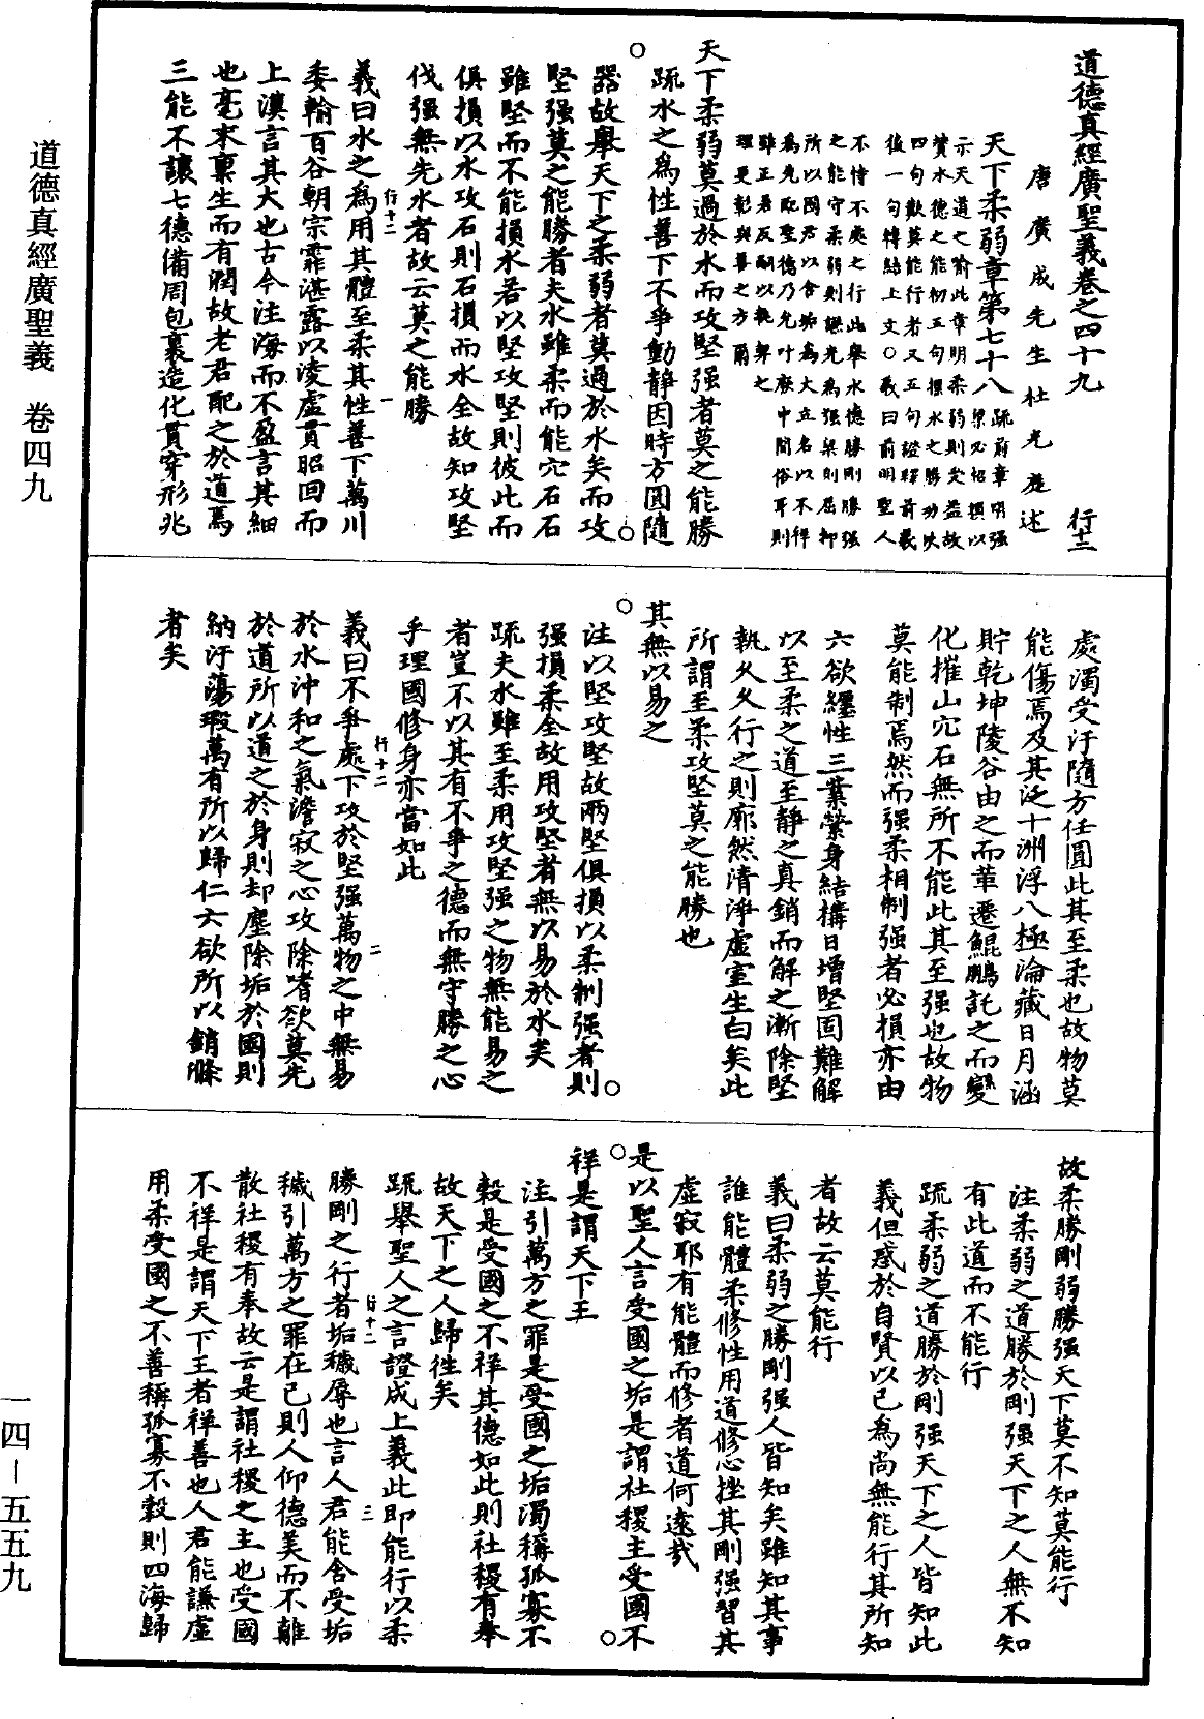 道德真經廣聖義卷之四十九 行十二
唐廣成先生杜光庭述
天下柔弱章第七十八
疏前章明强梁必招損以
示天道之喻此章明柔弱則受益故
贊水德之能初五句標水之勝功次
四句歎莫能行者又五句證釋前義
後一句轉結上文○義曰前明聖人
不恃不處之行此舉水德勝剛勝强
之能守柔弱則謙光為强梁則屈抑
所以國君以含垢為大立名以不祥
為先配聖德乃允叶於中間俗耳則
雖正若反酬以執契之
理更彰與善之方爾
天下柔弱莫過於水而攻堅强者莫之能勝
疏水之爲性善下不爭動静因時方圓隨
器故舉天下之柔弱者莫過於水矣而攻
堅强莫之能勝者夫水雖柔而能穴石石
雖堅而不能損水若以堅攻堅則彼此而
俱損以水攻石則石損而水全故知攻堅
伐强無先水者故云莫之能勝
行十二 一
義曰水之爲用其體至柔其性善下萬川
委輸百谷朝宗霏湛露以凌虛貫昭回而
上漢言其大也古今注海而不盈言其細
也毫末稟生而有潤故老君配之於道焉
三能不讓七德備周包裹造化貫穿形兆
處濁受汙隨方任圓此其至柔也故物莫
能傷焉及其泛十洲浮八極淪藏日月涵
貯乾坤陵谷由之而革遷鯤鵬託之而變
化摧山穴石無所不能此其至强也故物
莫能制焉然而强柔相制强者必損亦由
六欲纏性三業縈身結構日增堅固難解
以至柔之道至静之真銷而解之漸除堅
執久久行之則廓然清淨虛室生白矣此
所謂至柔攻堅莫之能勝也
其無以易之
注以堅攻堅故兩堅俱損以柔制强者則
强損柔全故用攻堅者無以易於水矣
疏夫水雖至柔用攻堅强之物無能易之
者豈不以其有不爭之德而無守勝之心
乎理國修身亦當如此
行十二 二
義曰不爭處下攻於堅强萬物之中無易
於水沖和之氣澹寂之心攻除嗜欲莫先
於道所以道之於身則却塵除垢於國則
納汙蕩瑕萬有所以歸仁六欲所以銷滌
者矣
故柔勝剛弱勝强天下莫不知莫能行
注柔弱之道勝於剛强天下之人無不知
有此道而不能行
疏柔弱之道勝於剛强天下之人皆知此
義但惑於自賢以己爲尚無能行其所知
者故云莫能行
義曰柔弱之勝剛强人皆知矣雖知其事
誰能體柔修性用道修心挫其剛强習其
虛寂耶有能體而修者道何遠哉
是以聖人言受國之垢是謂社稷主受國不
祥是謂天下王
注引萬方之罪是受國之垢濁稱孤寡不
穀是受國之不祥其德如此則社稷有奉
故天下之人歸往矣
疏舉聖人之言證成上義此即能行以柔
行十二 三
勝剛之行者垢穢辱也言人君能含受垢
穢引萬方之罪在己則人仰德美而不離
散社稷有奉故云是謂社稷之主也受國
不祥是謂天下王者祥善也人君能謙虛
用柔受國之不善稱孤寡不穀則四海歸
道德真經廣聖義 卷四九
一四－五五九